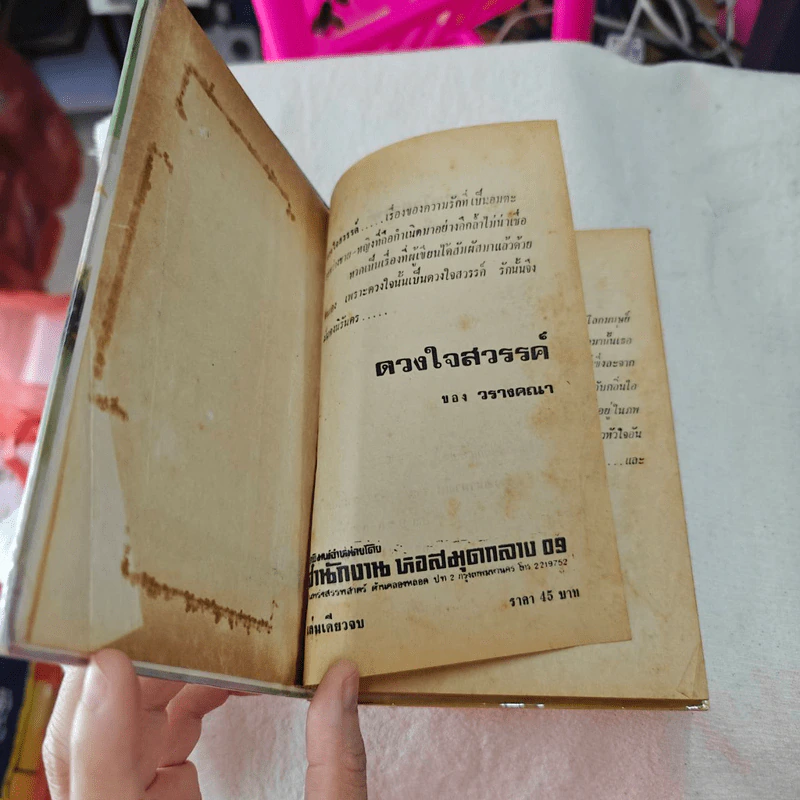 ใจสวรรค์.....เรื่องของความรักที่เป็นอมตะ
ชาย-หญิงที่ถือกำเนิดมาอย่างลึกล้ำไม่น่าเชื่อ
หากเป็นเรื่องที่ผู้เขียนได้สัมผัสมาแล้วด้วย
เพราะดวงใจนั้นเป็นดวงใจสวรรค์ รักนั้นจึง
นิรันดร.....
ดวงใจสวรรค์
ของ วรางคณา
พิมพ์จำหน่ายโดย
สำนักงาน หอสมุดกลาง 09
สรรพศาสตร์ ด้านคลองหลอด ปท 2 กรุงเทพมหานคร โทร 2219752
เล่มเดียวจบ
ราคา 45 บาท
โลกมนุษย์
มานั้นเธอ
ซึ่งละจาก
กับกลิ่นไอ
อยู่ในภพ
หัวใจอัน
...และ